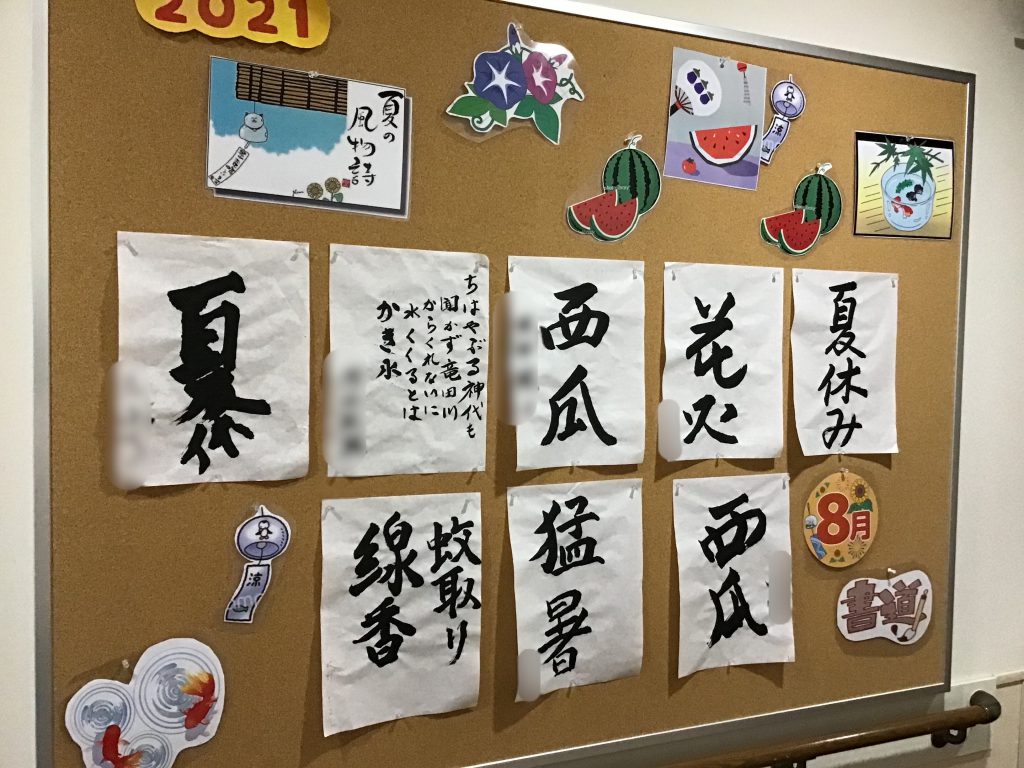 2021
夏の
風物詩
涼
夏休み
花火
西瓜
ちはやぶる神代も
聞かず竜田川
からくれないに
水くくるとは
かき氷
夏休
8月
書道
西瓜
猛暑
蚊取り
線香
涼